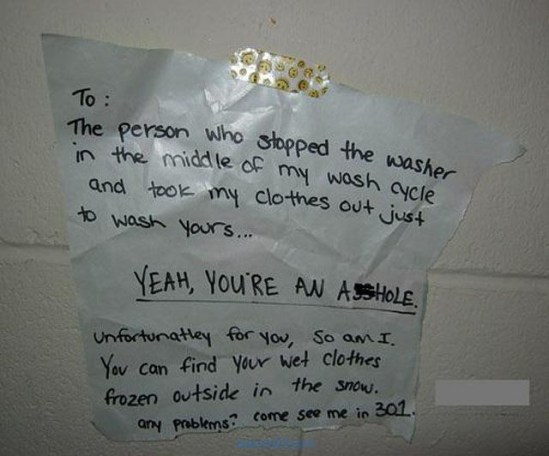 To :
The person who stopped the washer
in the middle of my wash cycle
and took my clothes out just
to wash yours...
YEAH, YOU'RE AN ASSHOLE.
Unfortunatley for you, so am I.
You can find your wet clothes
frozen outside in the snow.
any problems? come see me in 301.